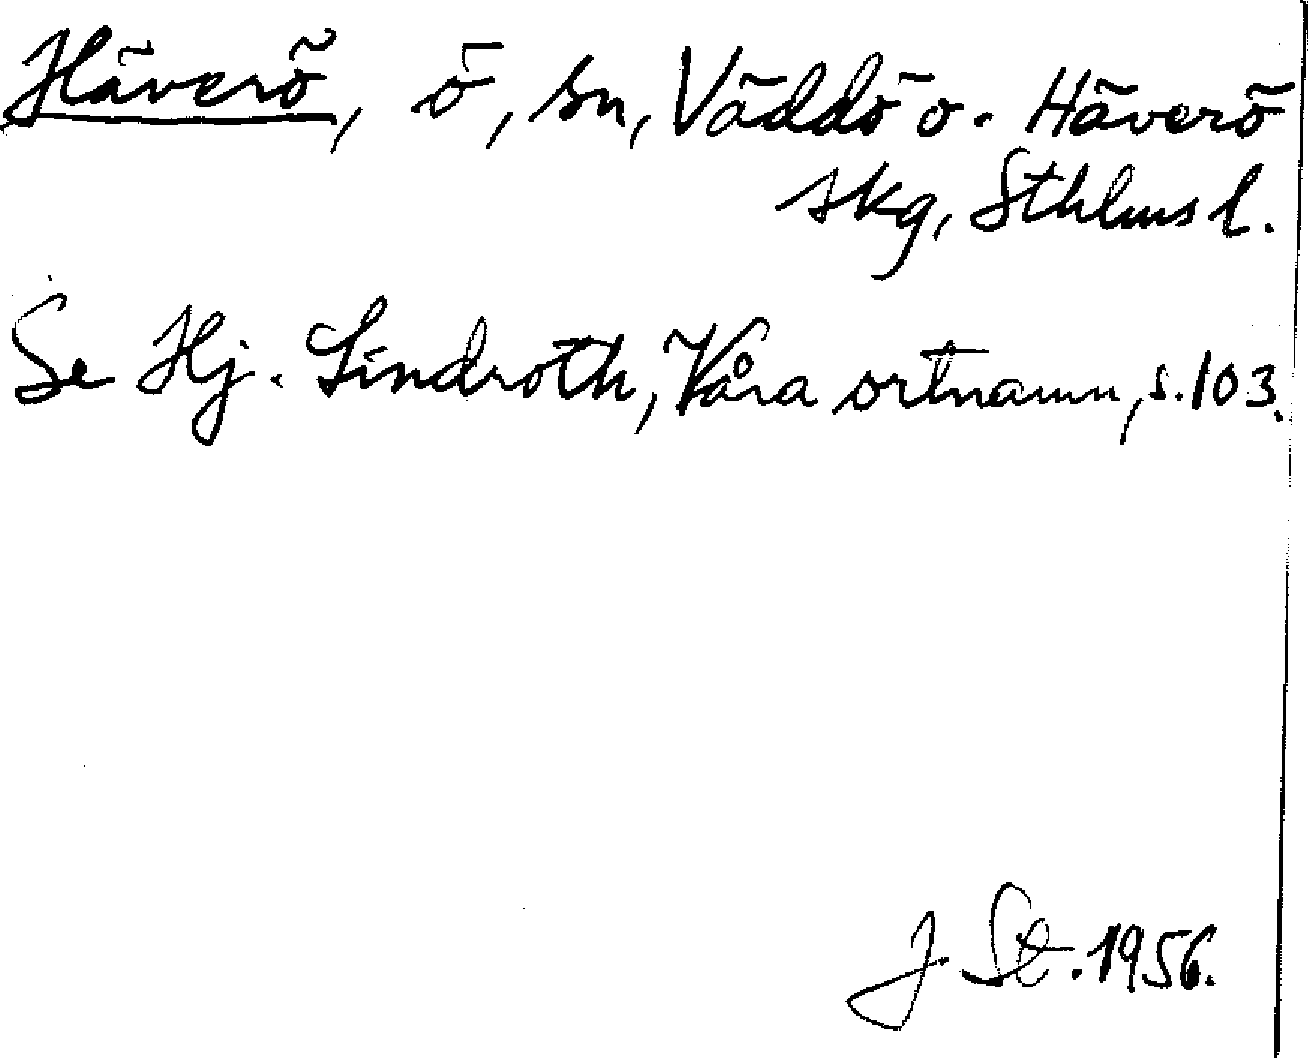 Häverö, ö, sn, Väddö o. Häverö
skg, Sthlms l.
Se Hj. Lindroth, Våra ortnamn, s. 103.
J. St. 1956.